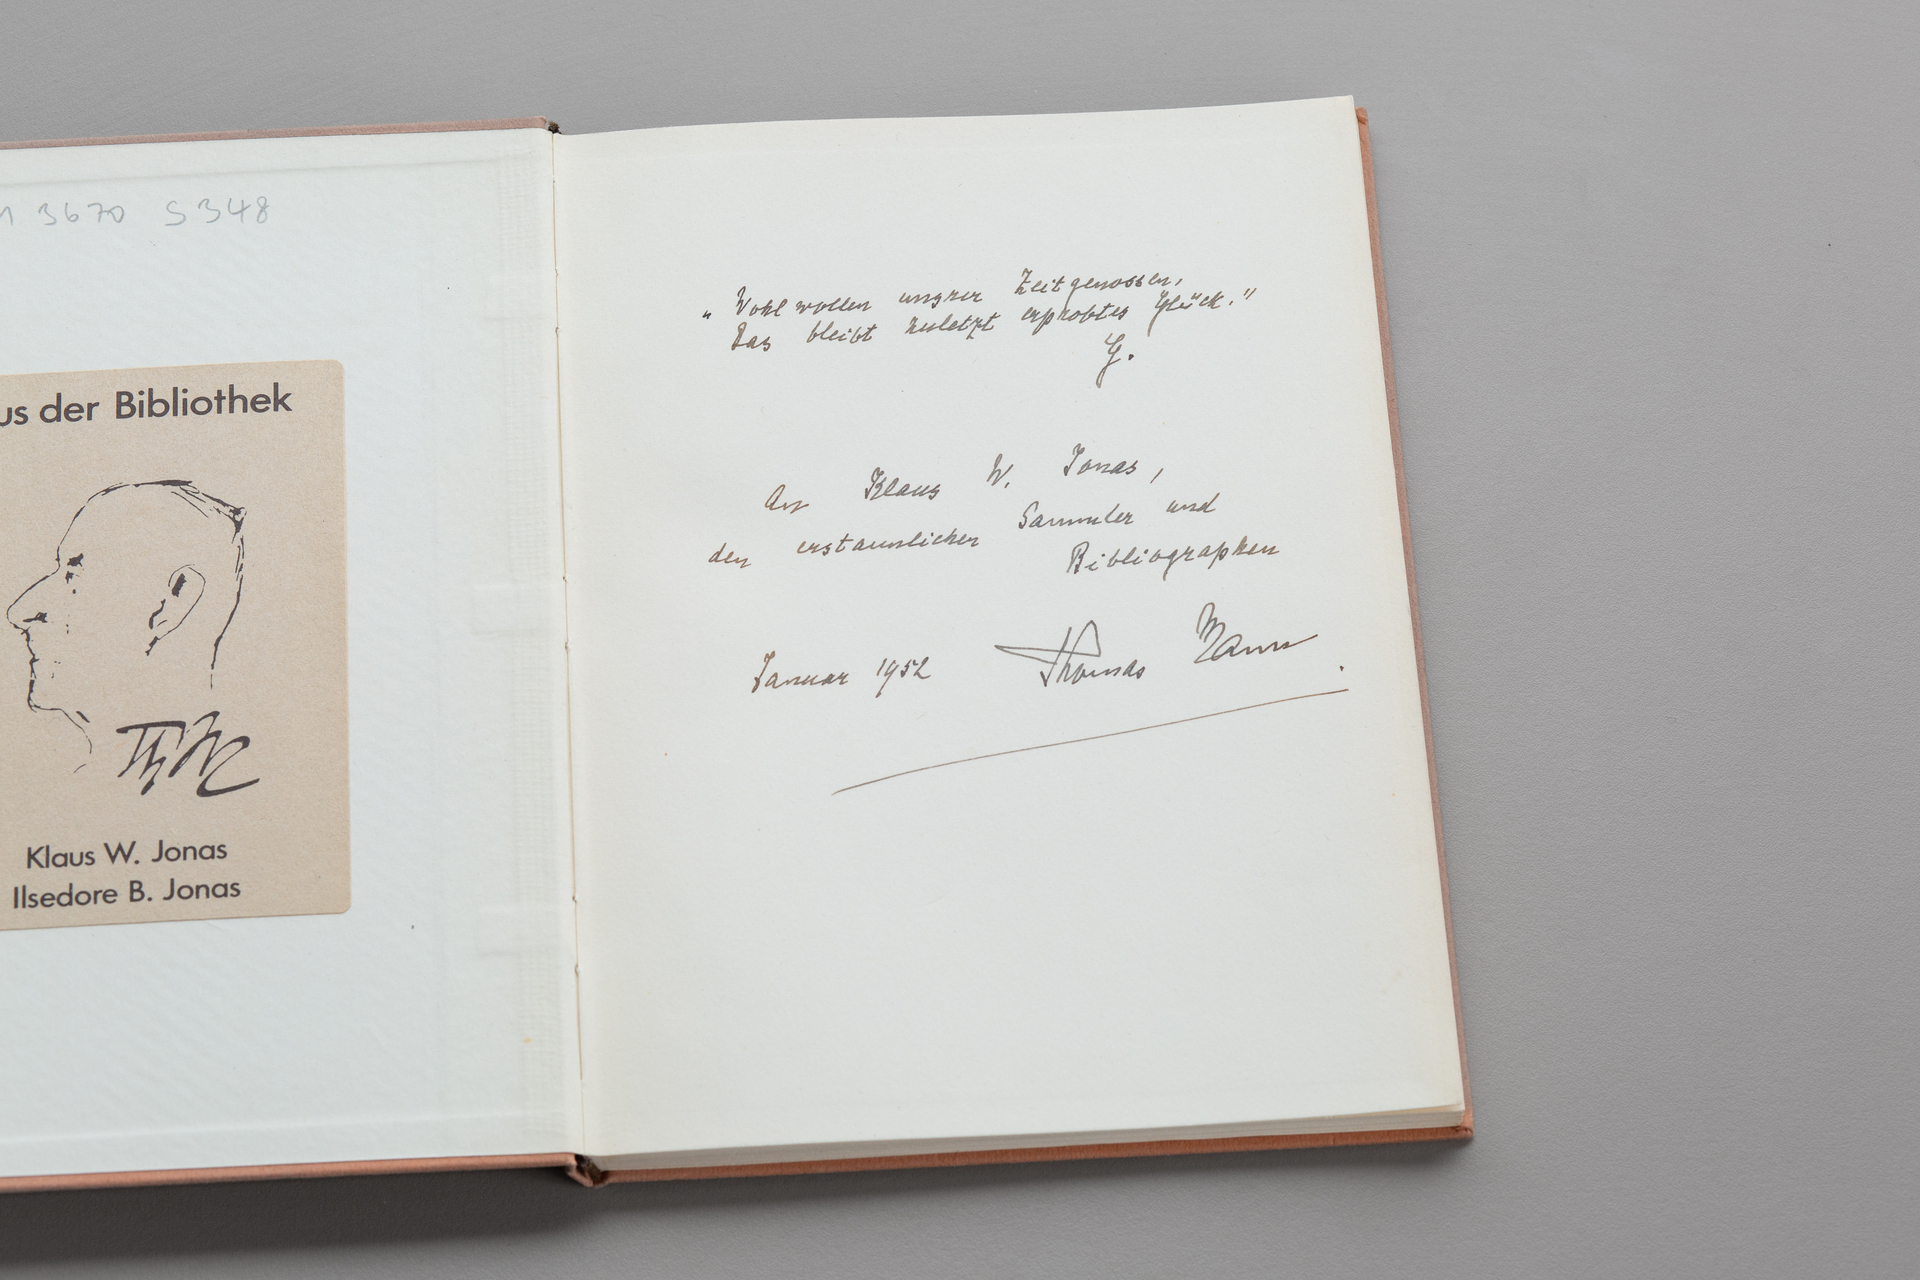 3670 S348
us der Bibliothek
Th M
Klaus W. Jonas
Ilsedore B. Jonas
„Wohlwollen unsrer Zeitgenossen,
Das bleibt zuletzt erprobtes Glück."
G.
An Klaus W. Jonas,
den erstaunlichen Sammler und
Bibliographen
Januar 1952 Thomas Mann